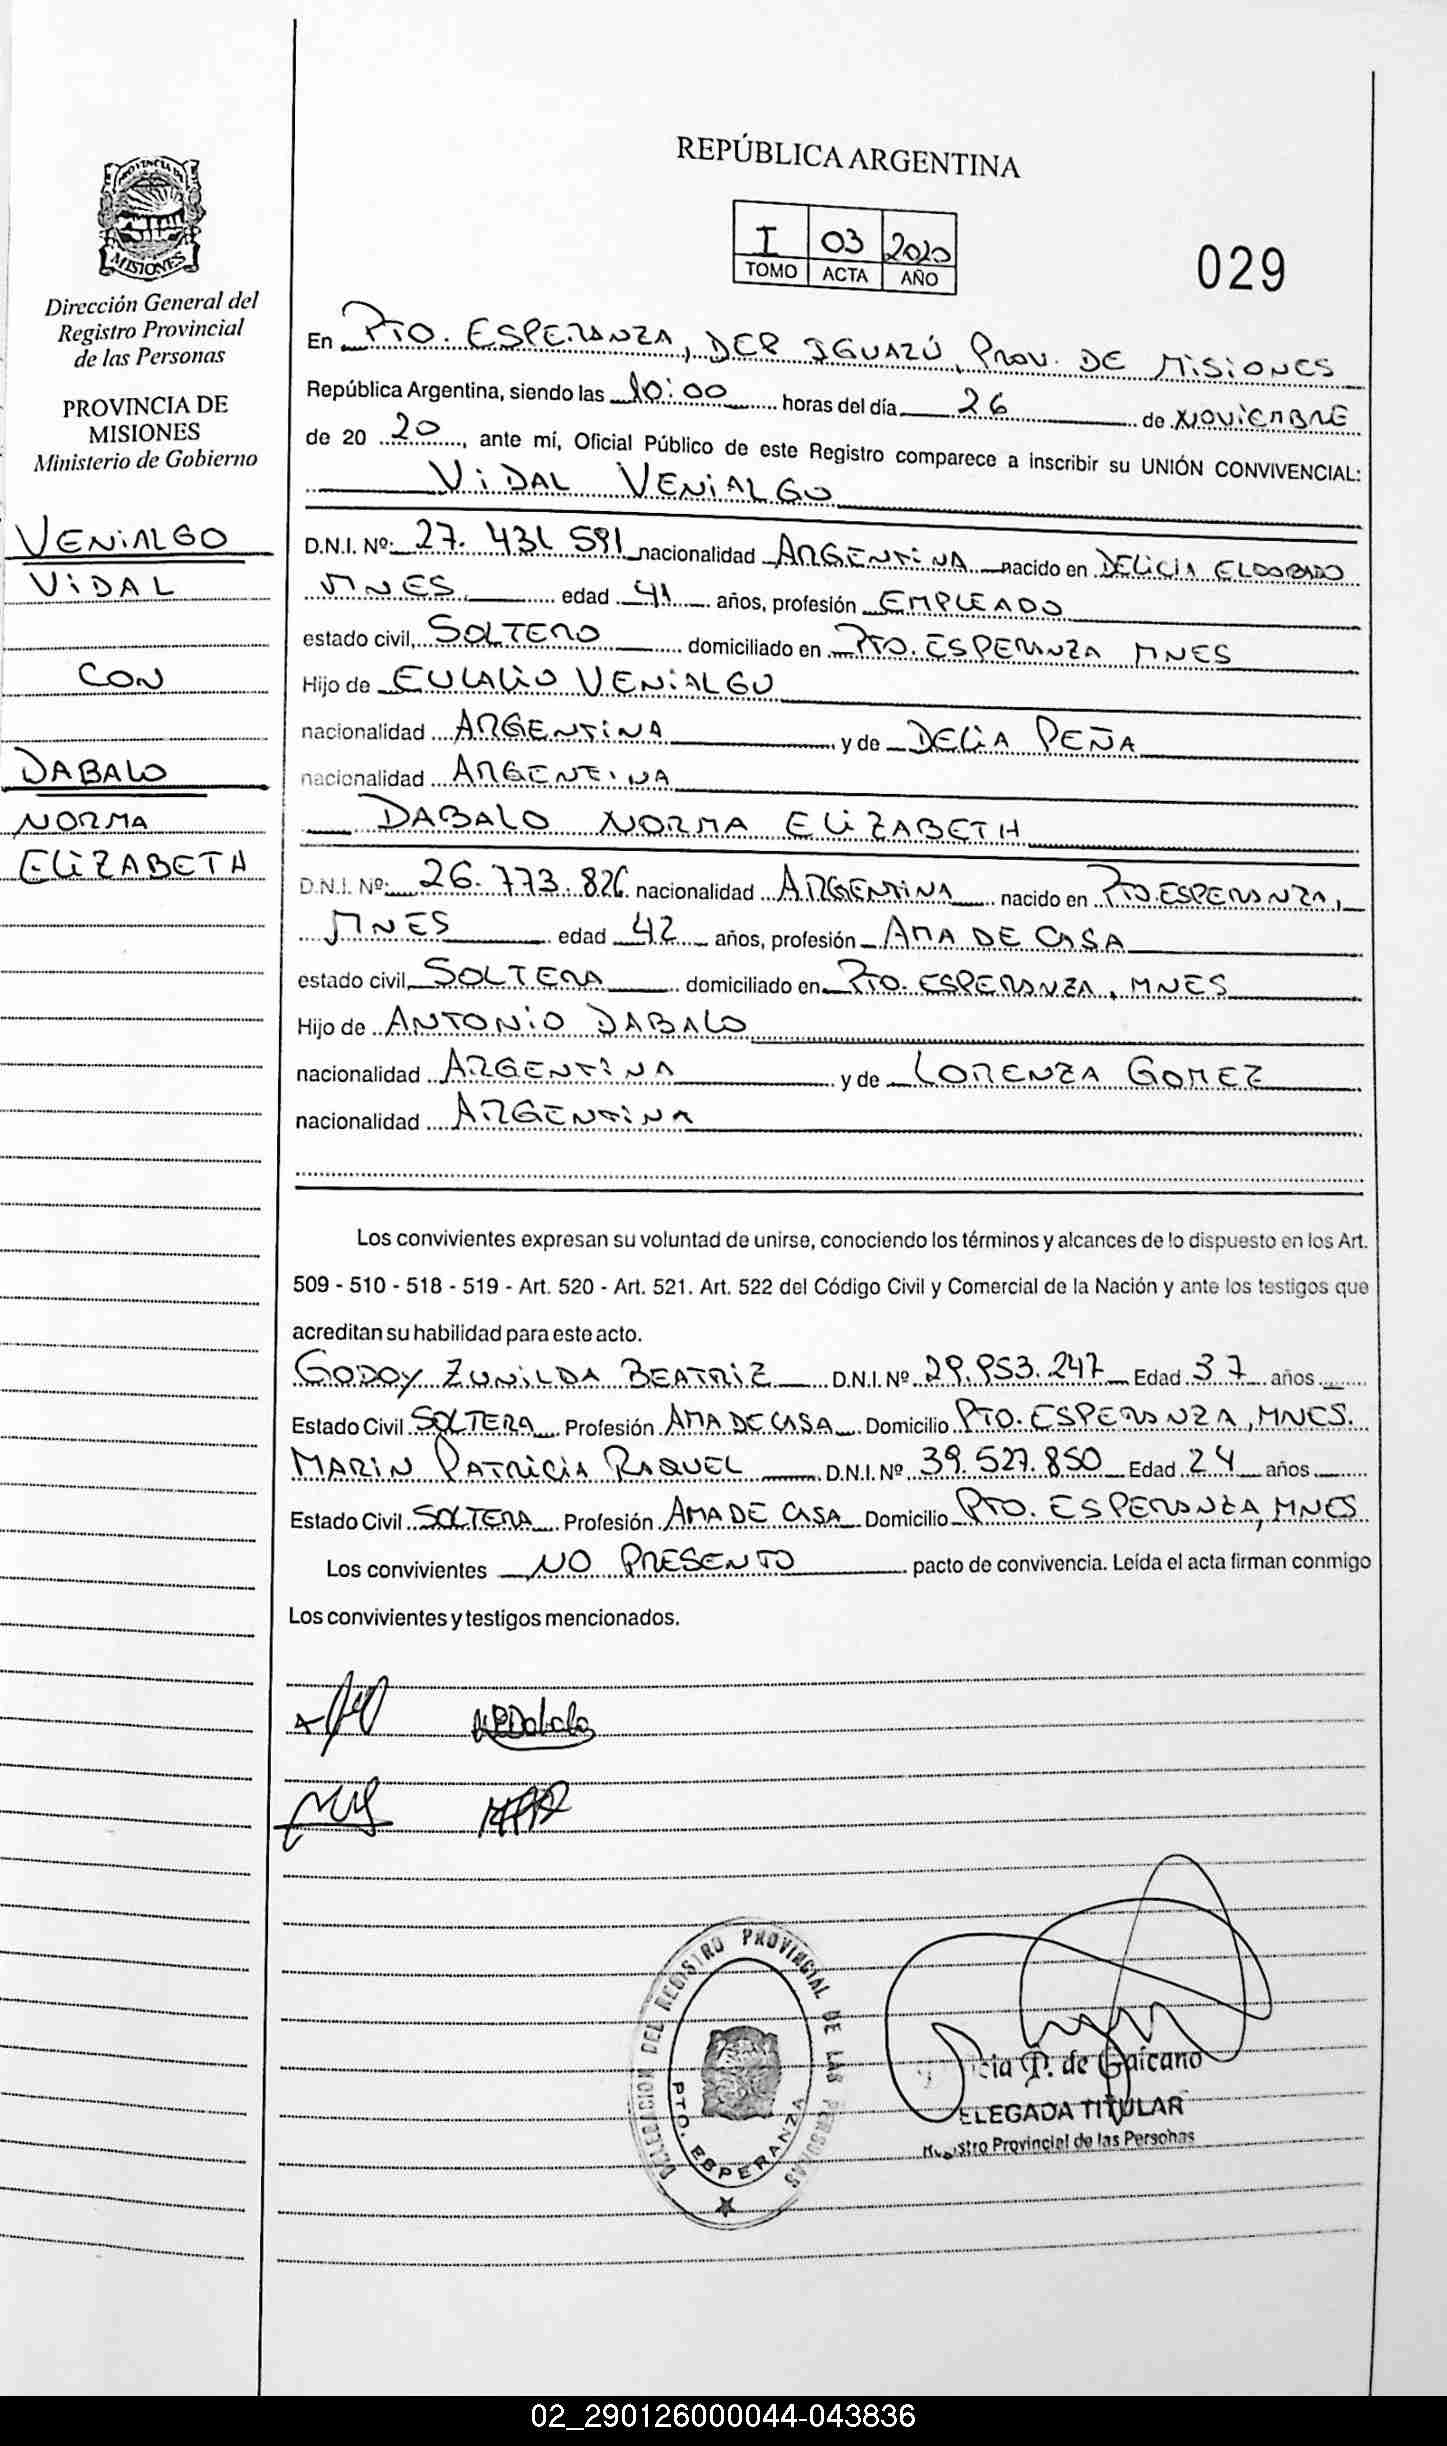 REPÚBLICA ARGENTINA
I 03 2020
TOMO ACTA AÑO
029
PROVINCIA DE
MISIONES
Dirección General del
Registro Provincial
de las Personas
PROVINCIA DE
MISIONES
Ministerio de Gobierno
VENIALGO
VIDAL
CON
DABALO
NORMA
ELIZABETH
En PTO. ESPERANZA, DEP IGUAZÚ, PROV. DE MISIONES
República Argentina, siendo las 10:00 horas del día 26 de NOVIEMBRE
de 20 20, ante mí, Oficial Público de este Registro comparece a inscribir su UNIÓN CONVIVENCIAL:
VIDAL VENIALGO
D.N.I. Nº: 27. 431 591 nacionalidad ARGENTINA nacido en DELICIA ELDORADO
MNES edad 41 años, profesión EMPLEADO
estado civil, SOLTERO domiciliado en PTO. ESPERANZA MNES
Hijo de EULALIO VENIALGO
nacionalidad ARGENTINA y de DELIA PEÑA
nacionalidad ARGENTINA
DABALO NORMA ELIZABETH
D.N.I. Nº: 26.773.826 nacionalidad ARGENTINA nacido en PTO. ESPERANZA,
MNES edad 42 años, profesión AMA DE CASA
estado civil, SOLTERA domiciliado en PTO. ESPERANZA, MNES
Hijo de ANTONIO DABALO
nacionalidad ARGENTINA y de LORENZA GOMEZ
nacionalidad ARGENTINA
Los convivientes expresan su voluntad de unirse, conociendo los términos y alcances de lo dispuesto en los Art.
509 - 510 - 518 - 519 - Art. 520 - Art. 521. Art. 522 del Código Civil y Comercial de la Nación y ante los testigos que
acreditan su habilidad para este acto.
GODOY ZUNILDA BEATRIZ D.N.I. Nº 29.953.247 Edad 37 años
Estado Civil SOLTERA Profesión AMA DE CASA Domicilio PTO. ESPERANZA, MNES.
MARIN PATRICIA RAQUEL D.N.I. Nº 39.527.850 Edad 24 años
Estado Civil SOLTERA Profesión AMA DE CASA Domicilio PTO. ESPERANZA, MNES
Los convivientes NO PRESENTO pacto de convivencia. Leída el acta firman conmigo
Los convivientes y testigos mencionados.
NEDabalo
DELEGACION DEL REGISTRO PROVINCIAL DE LAS PERSONAS
PTO. ESPERANZA
P. de Gaicano
ELEGADA TITULAR
Registro Provincial de las Personas
02_290126000044-043836